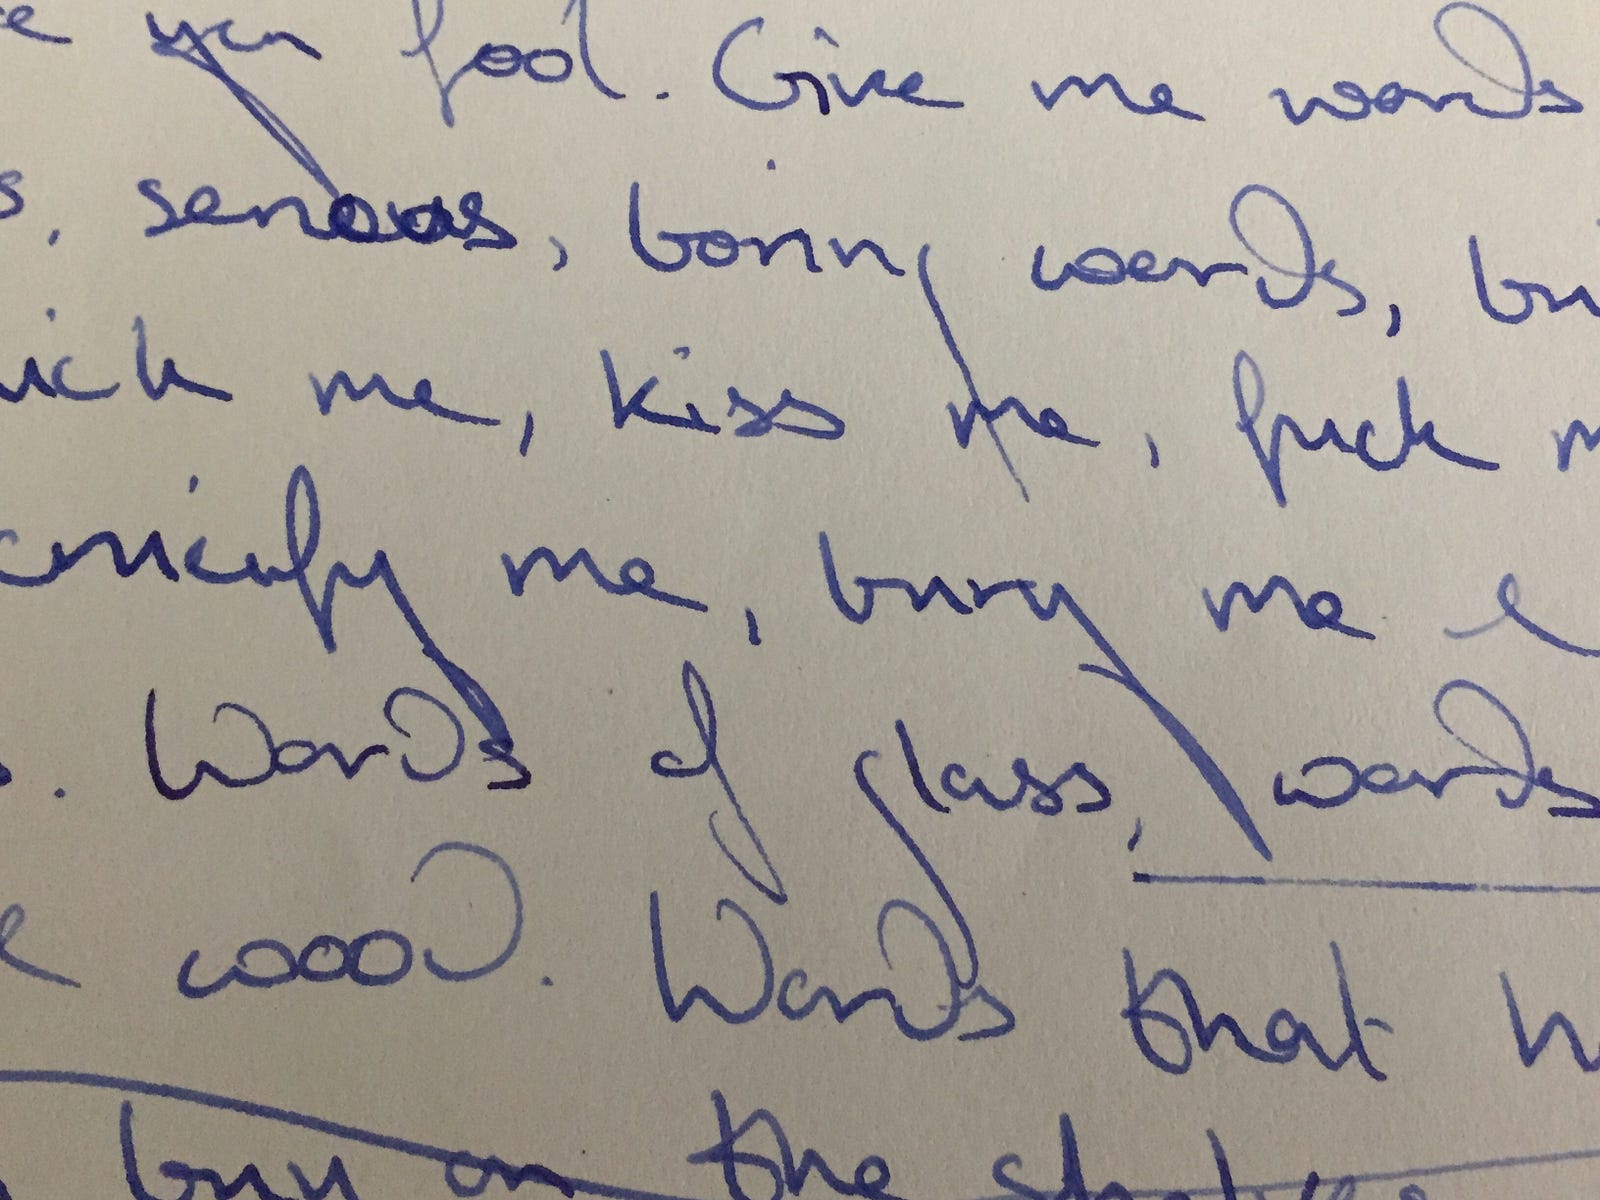 you food. Give me words
serious, boring words,
me, kiss me, fuck
me, bury me
Words of glass, words
wood. Words that
buy on the shelves